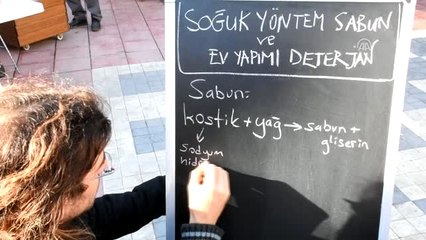 SOĞUK YÖNTEM SABUN
ve
EV YAPIMI DETERJAN
Sabun:
kostik + yağ → sabun +
gliserin
sodyum
hidr